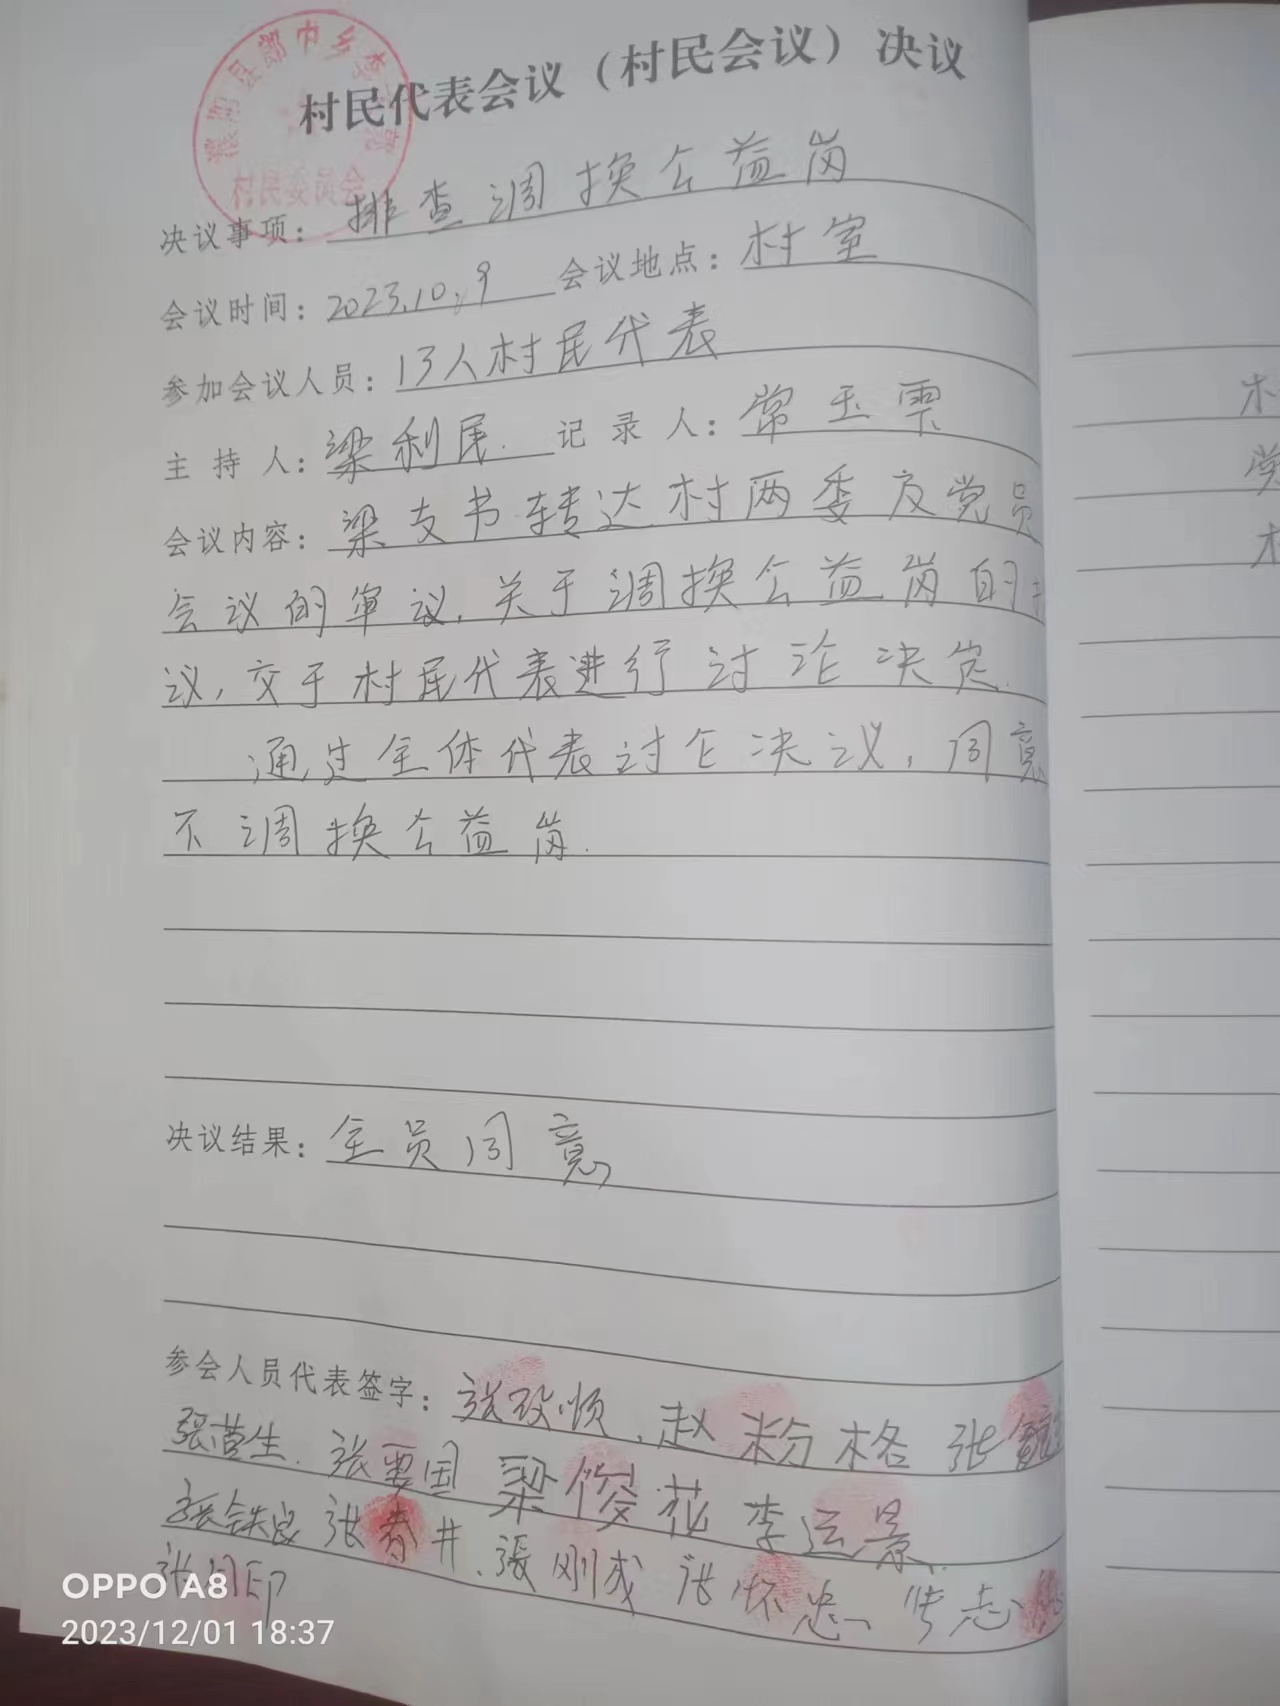 村民代表会议（村民会议）决议
村民委员会
决议事项：排查调换公益岗
会议时间：2023.10.9 会议地点：村室
参加会议人员：13人村民代表
主持人：梁利民. 记录人：常玉霞
会议内容：梁支书转达村两委及党员
会议的审议，关于调换公益岗的
议，交于村民代表进行讨论决定.
通过全体代表讨仑决议，同意
不调换公益岗.
决议结果：全员同意
参会人员代表签字：张改顺、赵粉格 张
张营生. 张要国 梁俊花 李运景.
张铁良 张春井、張刚成 张怀忠、
OPPO A8
2023/12/01 18:37